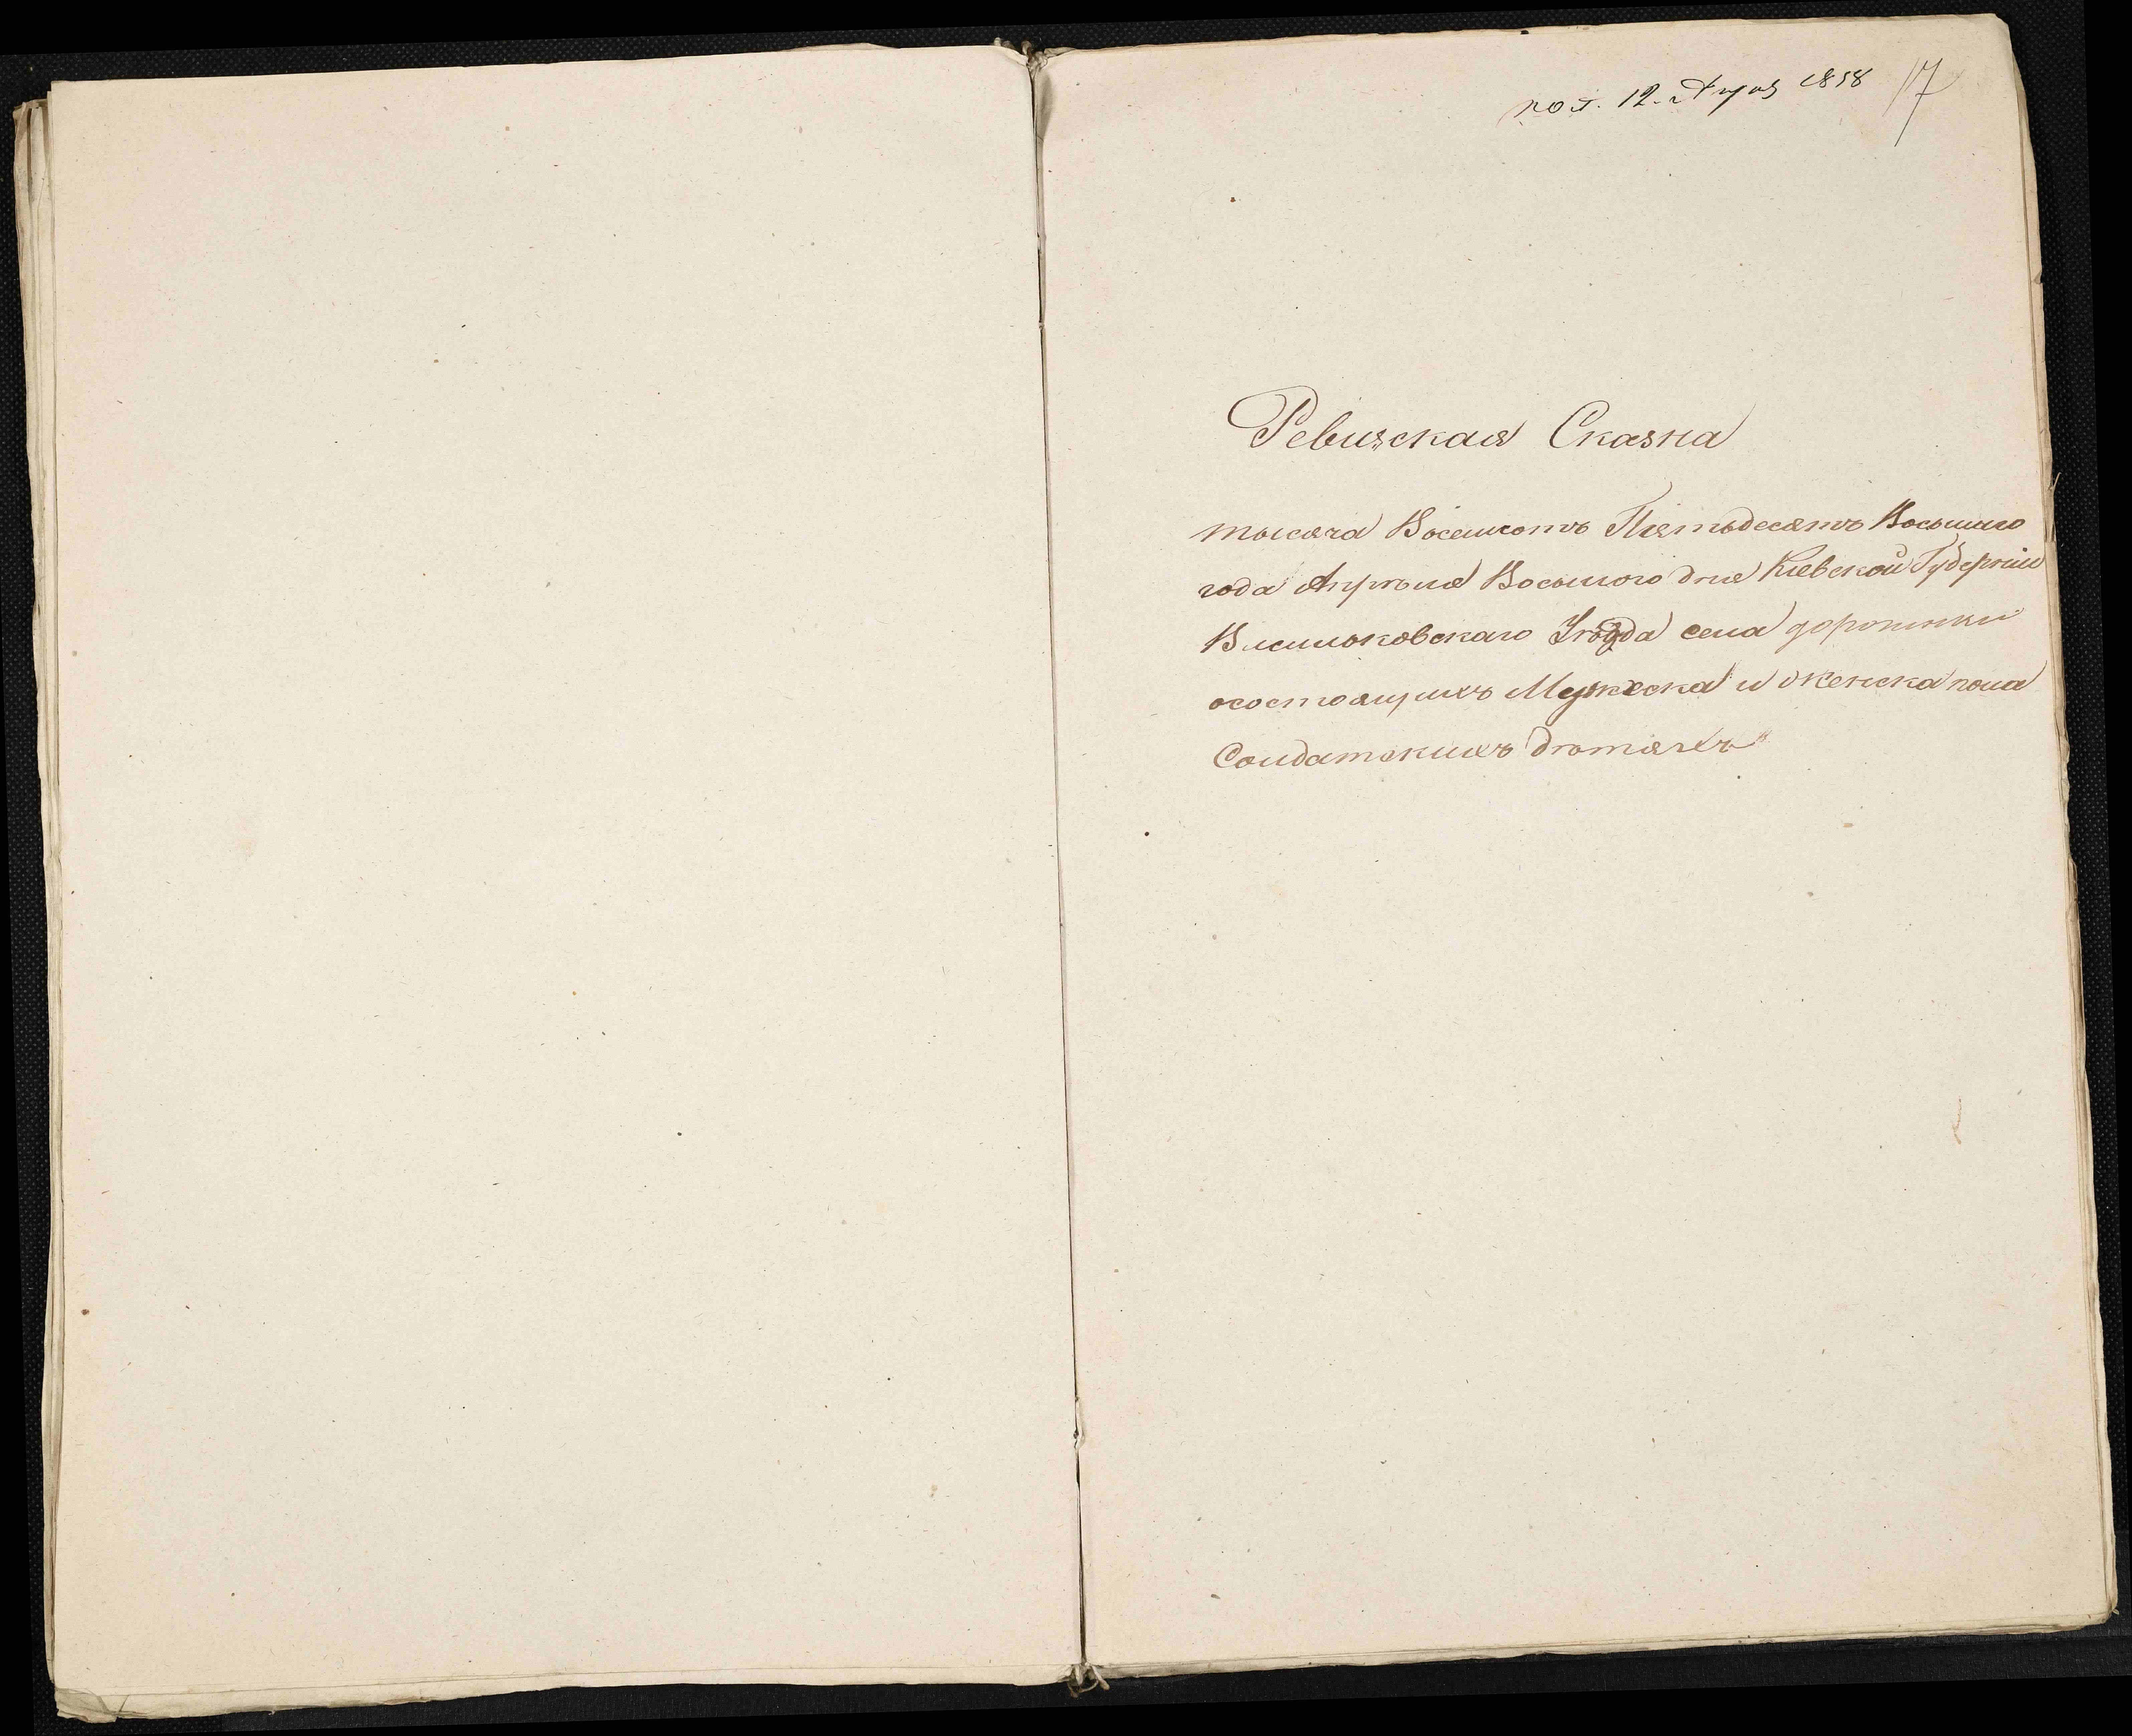 пол. 12. Апрел 1858 17
Ревизская Сказка
тысяча Восемсотъ Пятьдесятъ Восьмаго
года Апреля Восьмого дня Киевской Губернiи
Василковскаго Уезда села дорогинки
осостоящихъ Мужеска и женска пола
Солдатскихъ дѣтяхъ